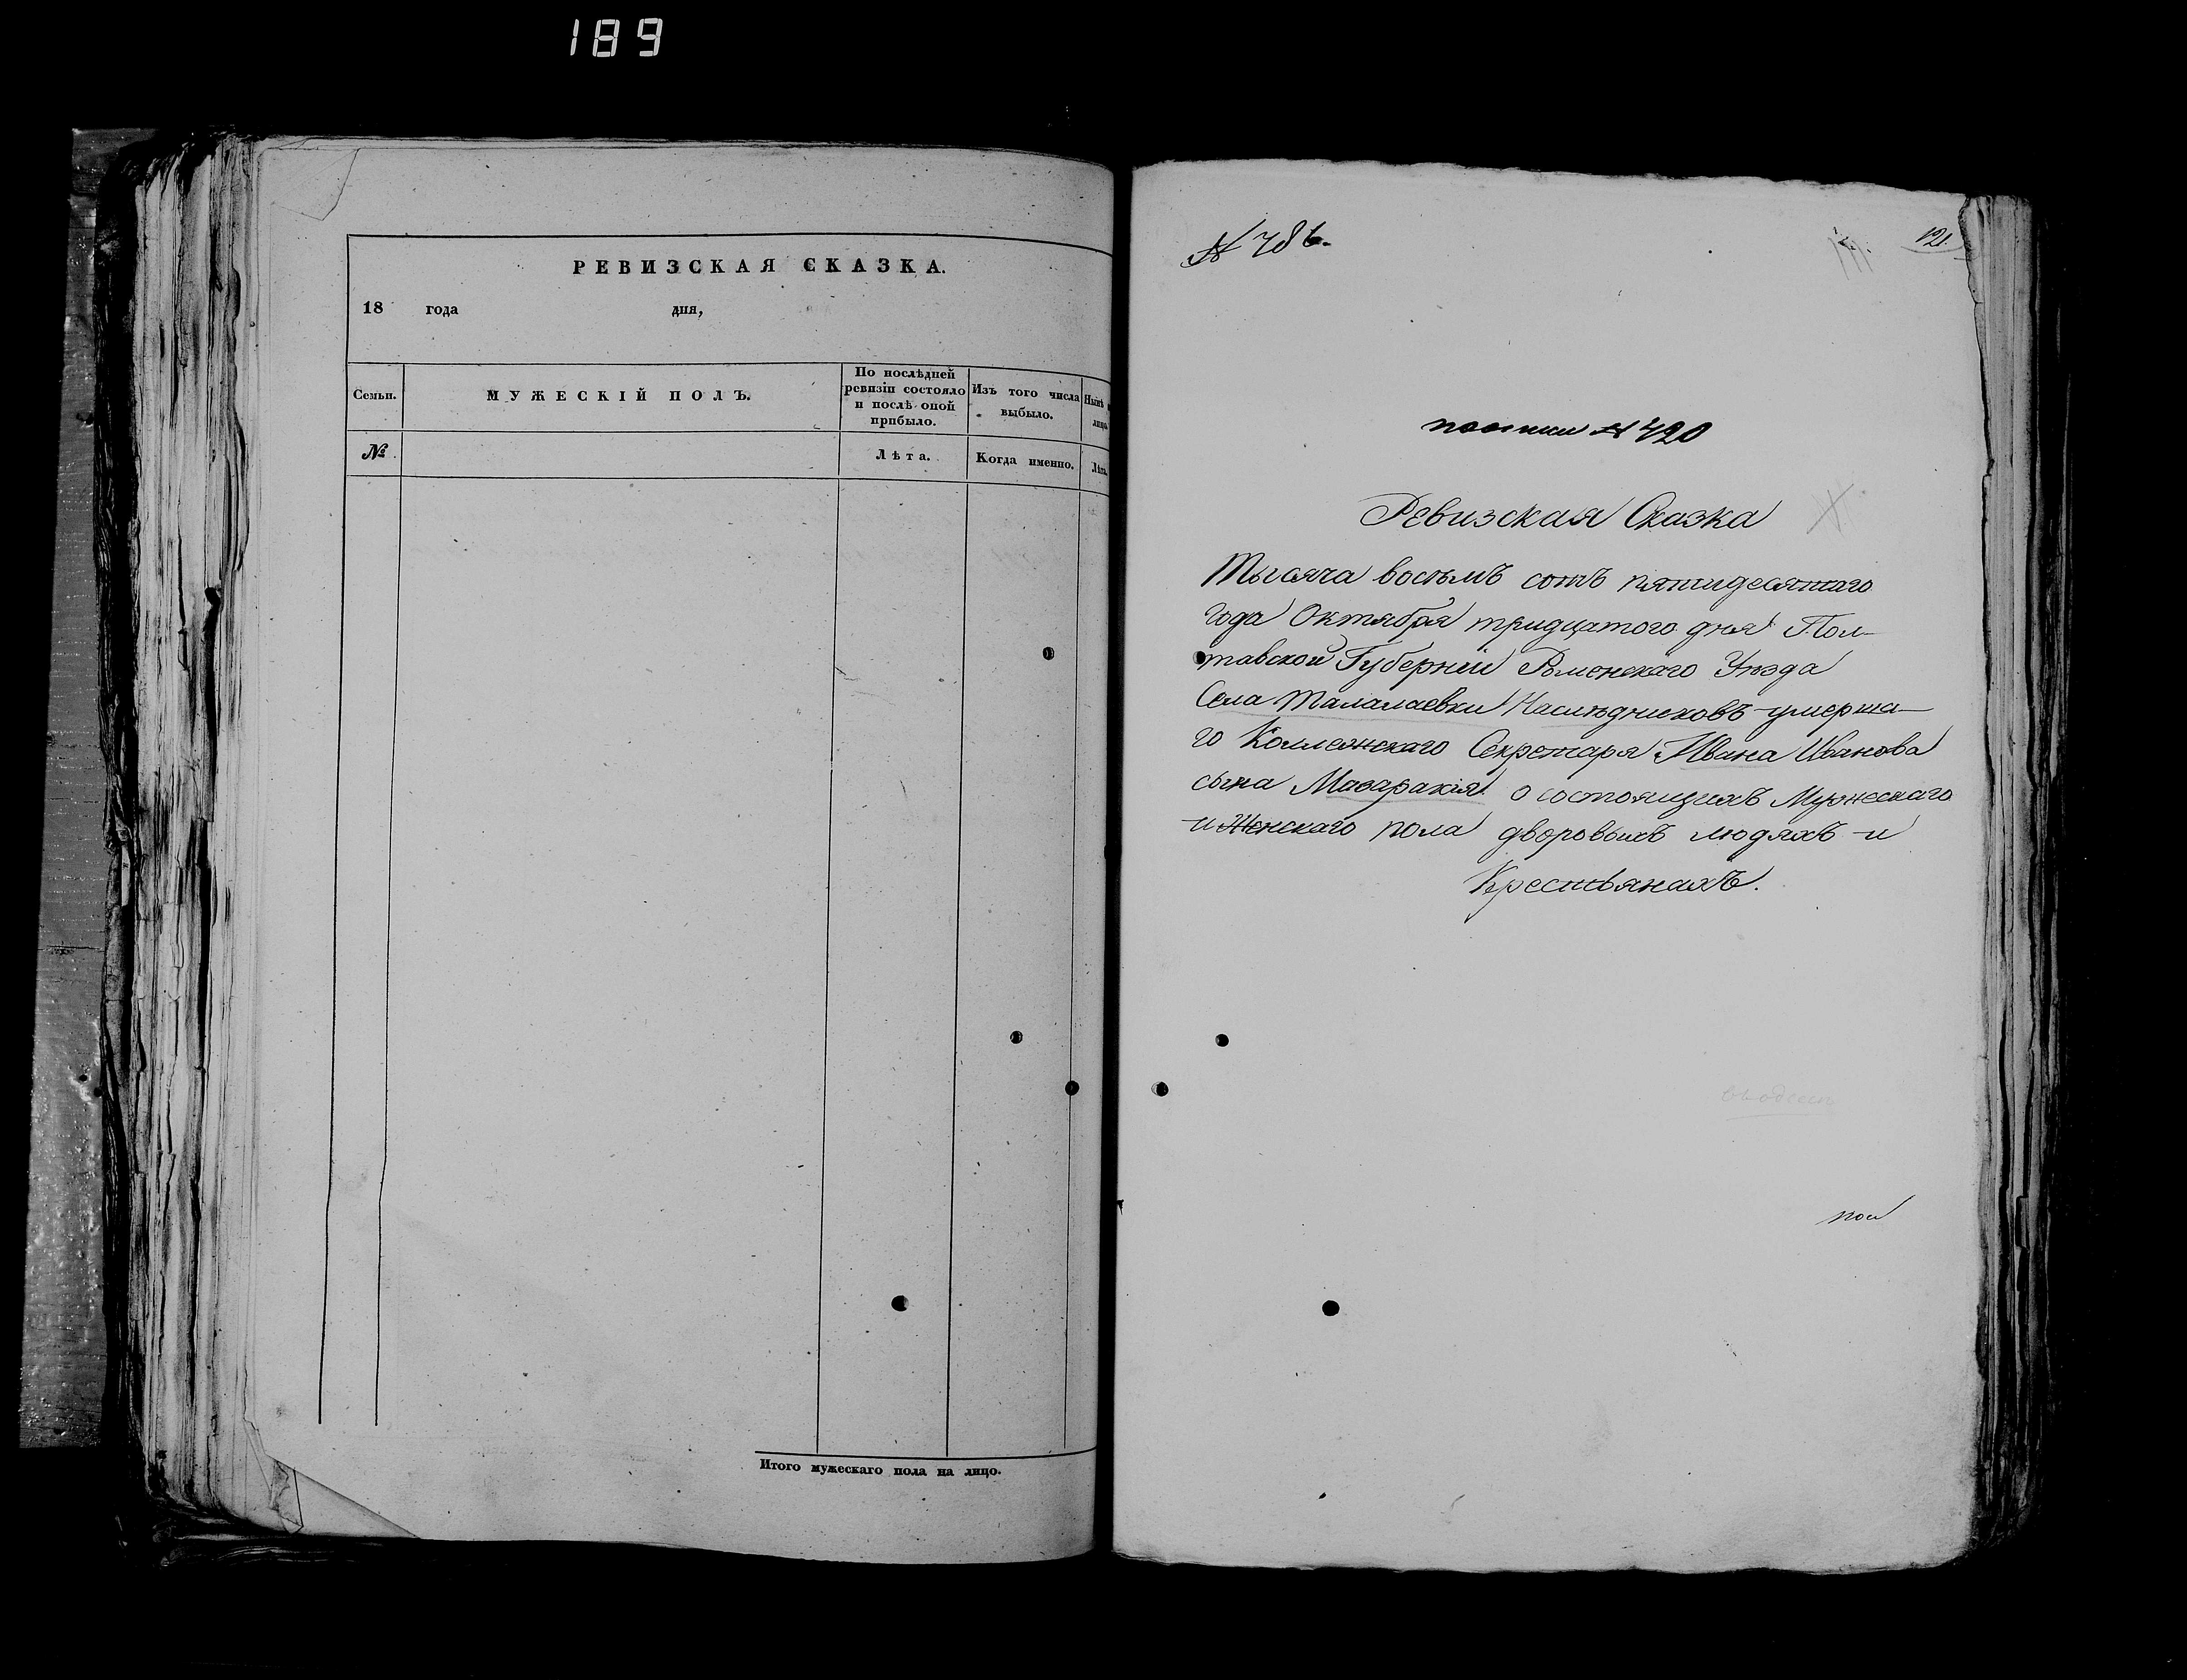 189
РЕВИЗСКАЯ СКАЗКА.
18 года дня,
Семьи. МУЖЕСКІЙ ПОЛЪ. По послѣдней ревизіи состояло и послѣ оной прибыло. Изъ того числа выбыло. Нынѣ
№ Лѣта. Когда именно. Лѣта.
Итого мужескаго пола на лицо.
№ 786.
121.
№ 420
Ревизская Сказка
Тысяча восемь сотъ пятидесятаго
года Октября тридцатого дня Пол-
тавской Губерніи Роменскаго Уѣзда
Села Талалаевки Наслѣдниковъ умерша-
го Коллежскаго Секретаря Ивана Иванова
сына Мазаракія о состоящихъ Мужескаго
и Женскаго пола дворовыхъ людяхъ и
Крестьянахъ.